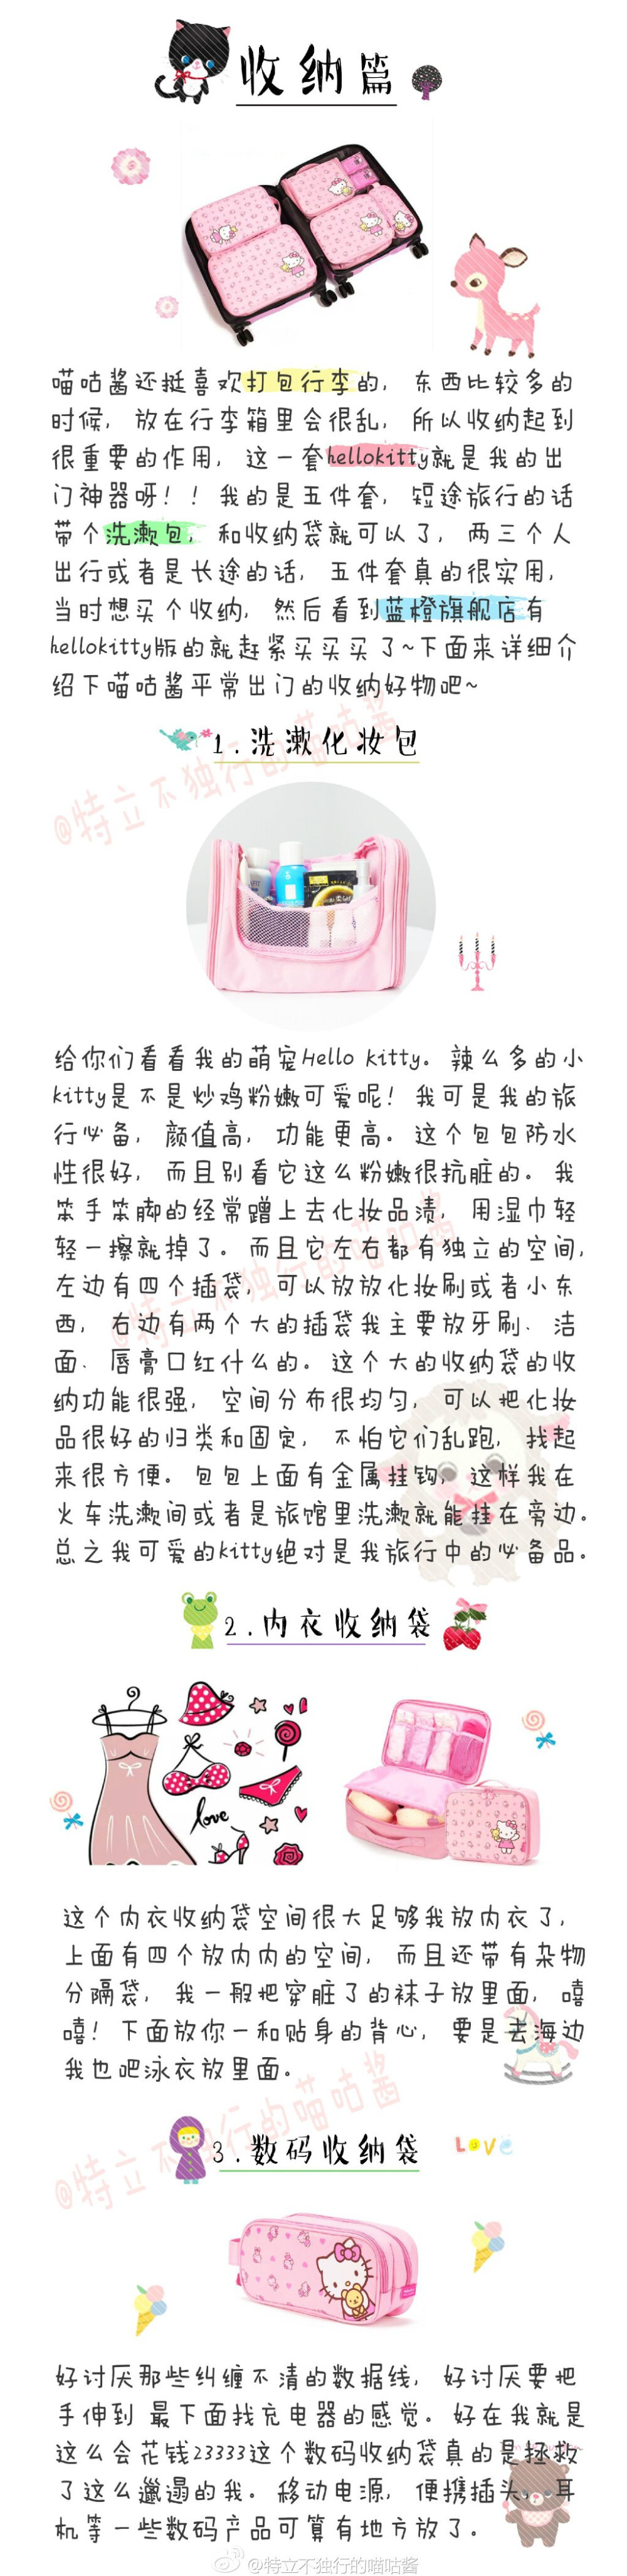 收纳篇
喵咕酱还挺喜欢打包行李的，东西比较多的
时候，放在行李箱里会很乱，所以收纳起到
很重要的作用，这一套hellokitty就是我的出
门神器呀！！我的是五件套，短途旅行的话
带个洗漱包，和收纳袋就可以了，两三个人
出行或者是长途的话，五件套真的很实用，
当时想买个收纳，然后看到蓝橙旗舰店有
hellokitty版的就赶紧买买买了~下面来详细介
绍下喵咕酱平常出门的收纳好物吧~
1.洗漱化妆包
@特立不独行的喵咕酱
给你们看看我的萌宠Hello Kitty。辣么多的小
kitty是不是炒鸡粉嫩可爱呢！我可是我的旅
行必备，颜值高，功能更高。这个包包防水
性很好，而且别看它这么粉嫩很抗脏的。我
笨手笨脚的经常蹭上去化妆品渍，用湿巾轻
轻一擦就掉了。而且它左右都有独立的空间，
左边有四个插袋，可以放放化妆刷或者小东
西，右边有两个大的插袋我主要放牙刷、洁
面、唇膏口红什么的。这个大的收纳袋的收
纳功能很强，空间分布很均匀，可以把化妆
品很好的归类和固定，不怕它们乱跑，找起
来很方便。包包上面有金属挂钩，这样我在
火车洗漱间或者是旅馆里洗漱就能挂在旁边。
总之我可爱的kitty绝对是我旅行中的必备品。
@特立不独行的喵咕酱
2.内衣收纳袋
love
这个内衣收纳袋空间很大足够我放内衣了，
上面有四个放内内的空间，而且还带有杂物
分隔袋，我一般把穿脏了的袜子放里面，嘻
嘻！下面放你一和贴身的背心，要是去海边
我也吧泳衣放里面。
@特立不独行的喵咕酱
3.数码收纳袋
LOVE
好讨厌那些纠缠不清的数据线，好讨厌要把
手伸到 最下面找充电器的感觉。好在我就是
这么会花钱23333这个数码收纳袋真的是拯救
了这么邋遢的我。移动电源，便携插头，耳
机等一些数码产品可算有地方放了。
@特立不独行的喵咕酱